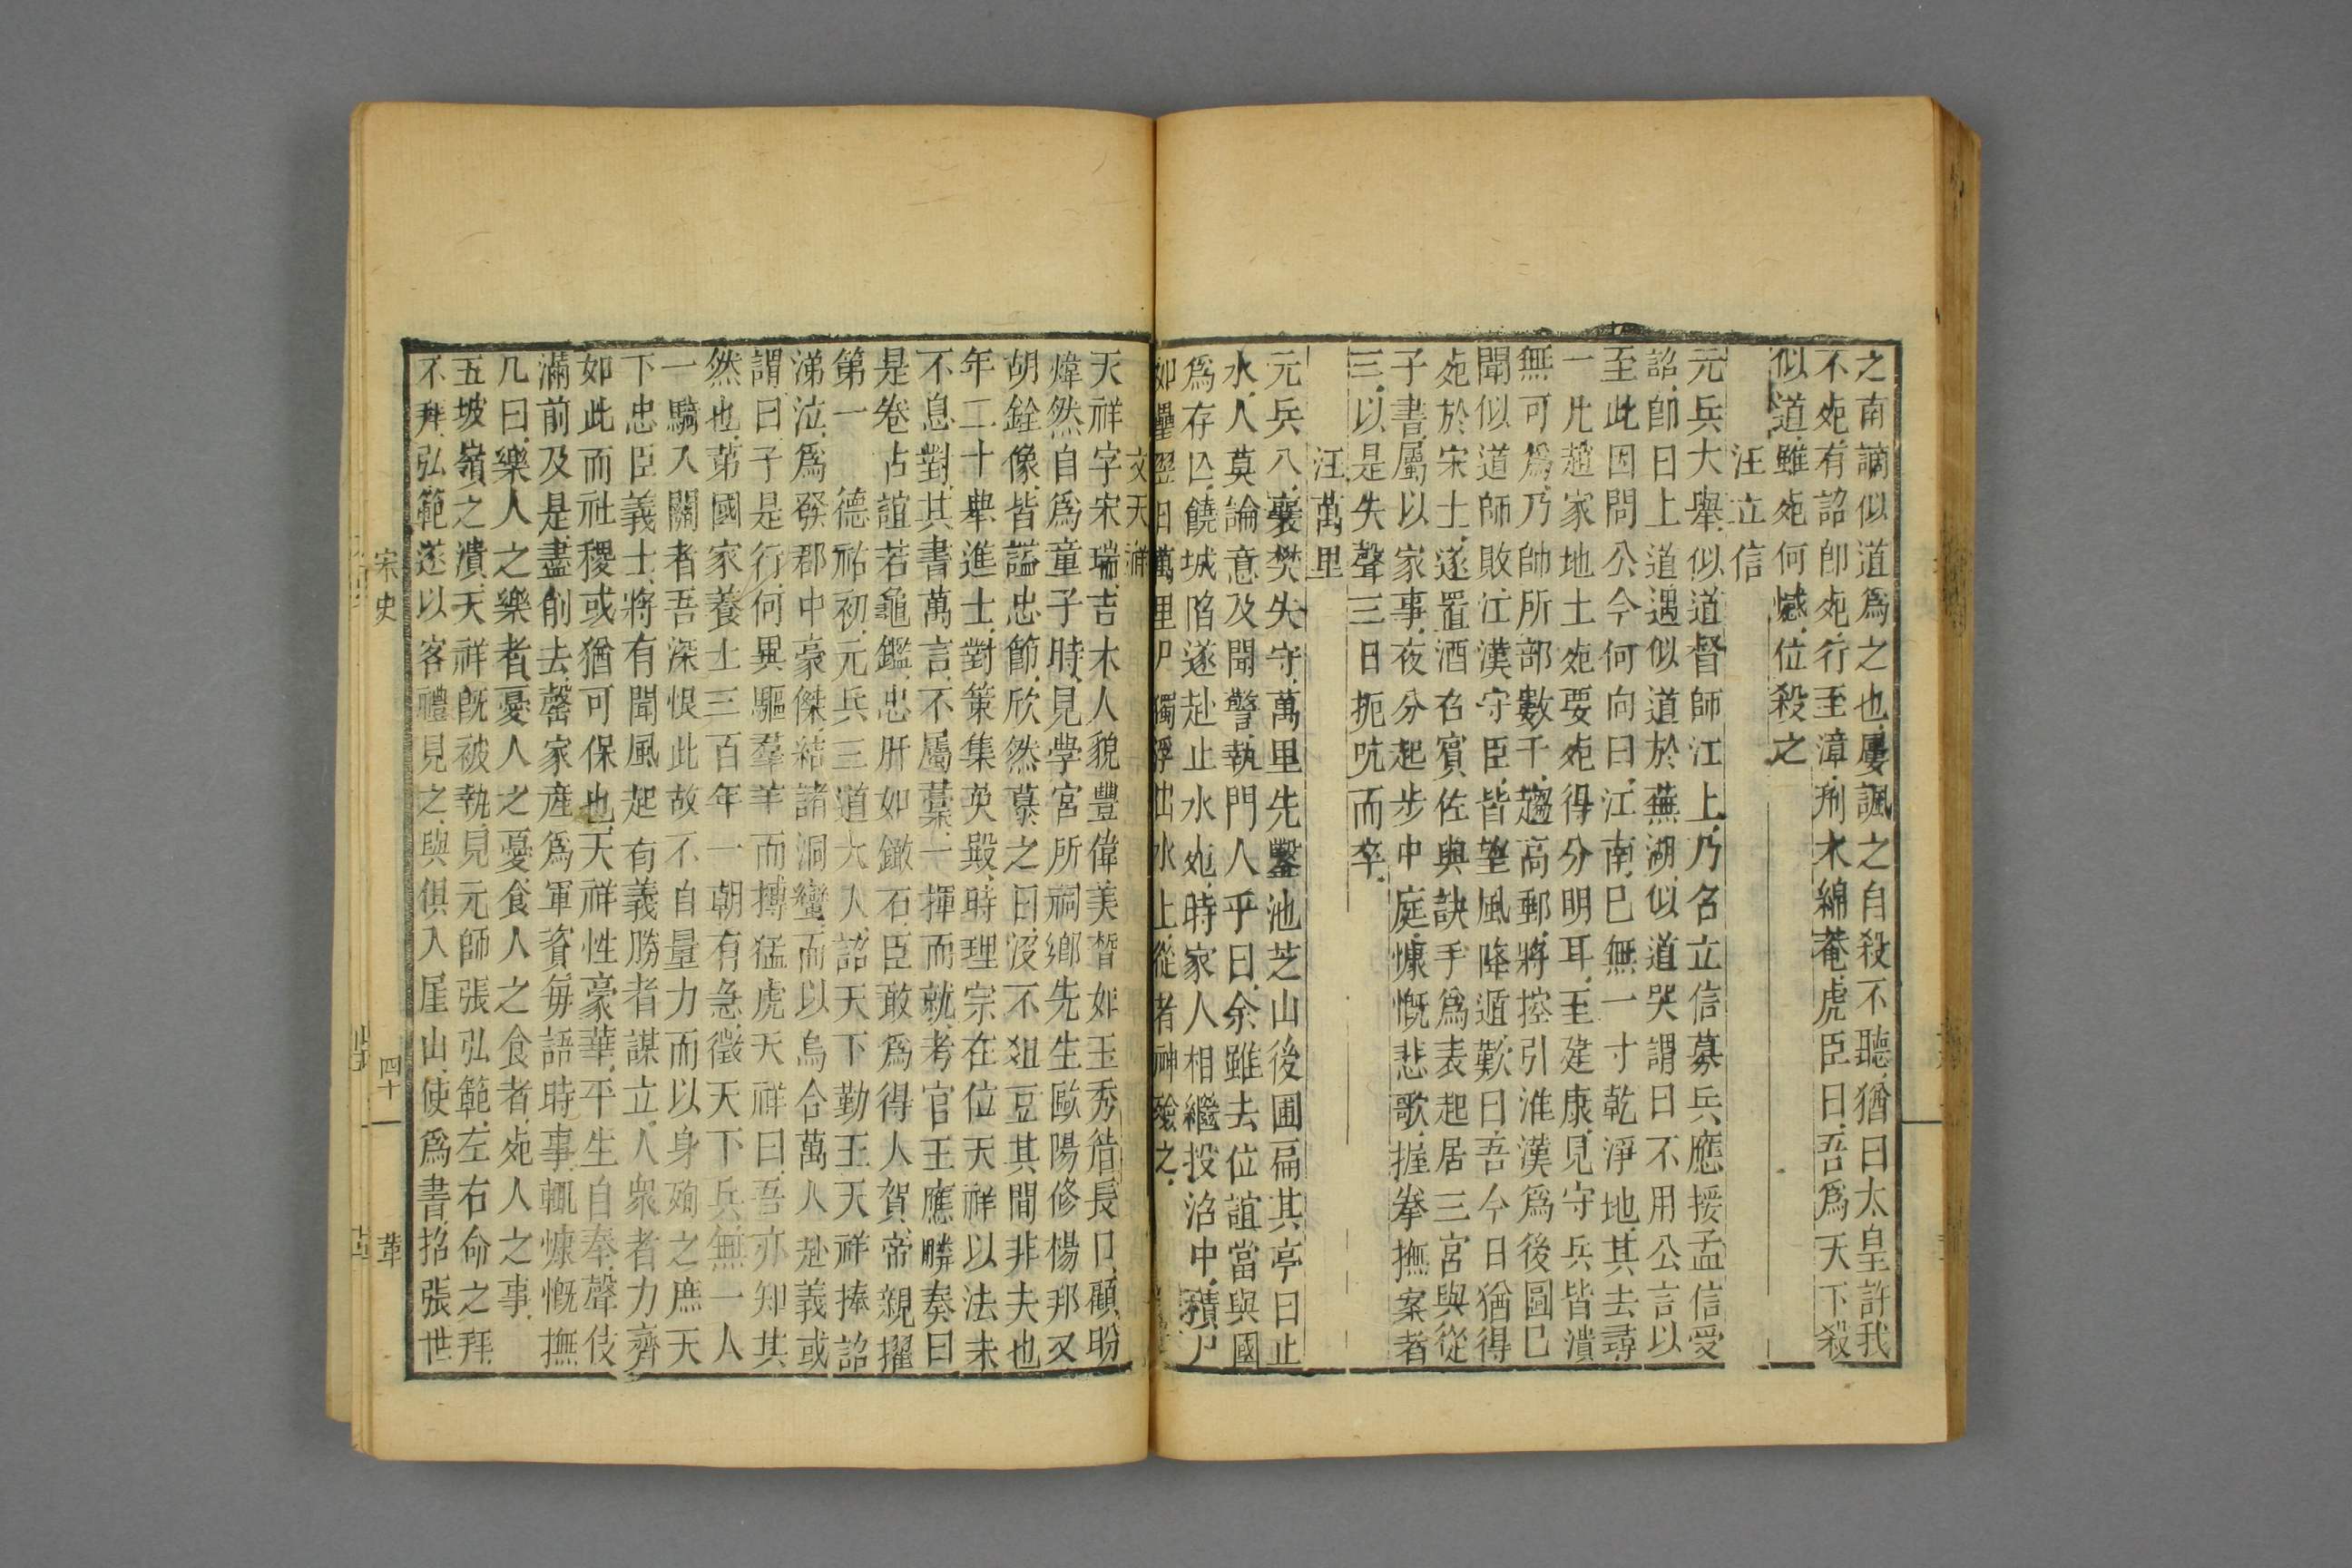 之南謫似道爲之也屢諷之自殺不聽猶曰太皇許我
不𣦸有詔卽𣦸行至漳州木綿菴虎臣曰吾爲天下殺
似道雖𣦸何憾位殺之
汪立信
元兵大舉似道督師江上乃召立信募兵應援孟信受
詔卽日上道遇似道於蕪湖似道哭謂曰不用公言以
至此因問公今何向曰江南巳無一寸乾淨地其去尋
一片趙家地土𣦸要𣦸得分明耳至建康見守兵皆潰
無可爲乃帥所部數千趨高郵將控引淮漢爲後圖巳
聞似道師敗江漢守臣皆望風降遁歎曰吾今日猶得
𣦸於宋土遂置酒召賓佐與訣手爲表起居三宮與從
子書屬以家事夜分起步中庭慷慨悲歌握拳撫案者
三以是失聲三日扼吭而卒
汪萬里
元兵八襄樊失守萬里先鑿池芝山後圃扁其亭曰止
水人莫諭意及聞警執門人乎曰余雖去位誼當與國
爲存亡饒城陷遂赴止水𣦸時家人相繼投沼中積尸
如壘翌日萬里尸獨浮出水上從者神殮之
文天祥
天祥字宋瑞吉水人貌豐偉美晳如玉秀眉長目顧盼
煒然自爲童子時見學宮所祠鄉先生歐陽修楊邦乂
胡銓像皆諡忠節欣然慕之曰没不俎豆其間非夫也
年二十舉進士對策集英殿時理宗在位天祥以法未
不息對其書萬言不屬藁一揮而就考官王應麟奏曰
是卷占誼若龜鑑忠肝如鐵石臣敢爲得人賀帝親擢
第一　德祐初元兵三道大入詔天下勤王天祥捧詔
涕泣爲發郡中豪傑結諸洞蠻而以烏合萬人赴義或
謂曰子是行何異驅羣羊而搏猛虎天祥曰吾亦知其
然也第國家養士三百年一朝有急徵天下兵無一人
一騎入關者吾深恨此故不自量力而以身殉之庶天
下忠臣義士將有聞風起有義勝者謀立人衆者力齊
如此而社稷或猶可保也天祥性豪華平生自奉聲伎
滿前及是盡削去罄家產爲軍資每語時事輒慷慨撫
几曰樂人之樂者憂人之憂食人之食者𣦸人之事
五坡嶺之潰天祥旣被執見元師張弘範左右命之拜
不拜弘範遂以客禮見之與俱入厓山使爲書招張世
宋史
四十